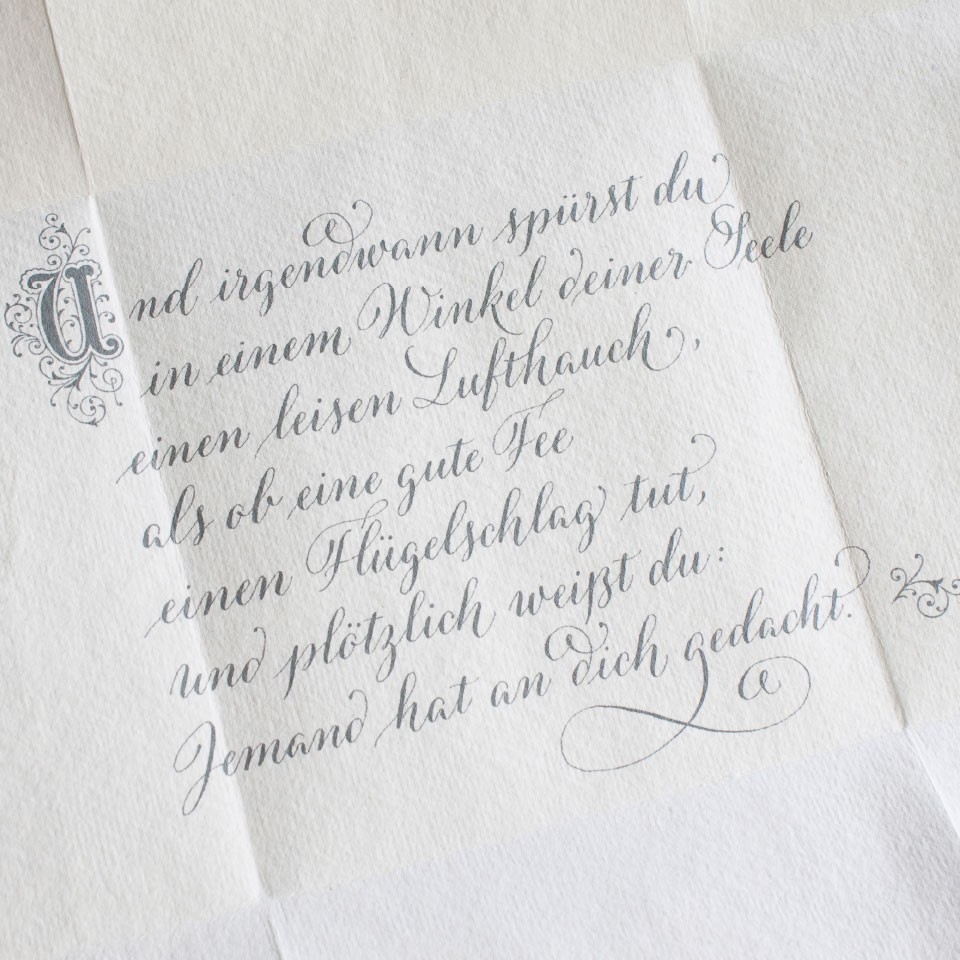 Und irgendwann spürst du
in einem Winkel deiner Seele
einen leisen Lufthauch,
als ob eine gute Fee
einen Flügelschlag tut,
und plötzlich weißt du:
Jemand hat an dich gedacht.